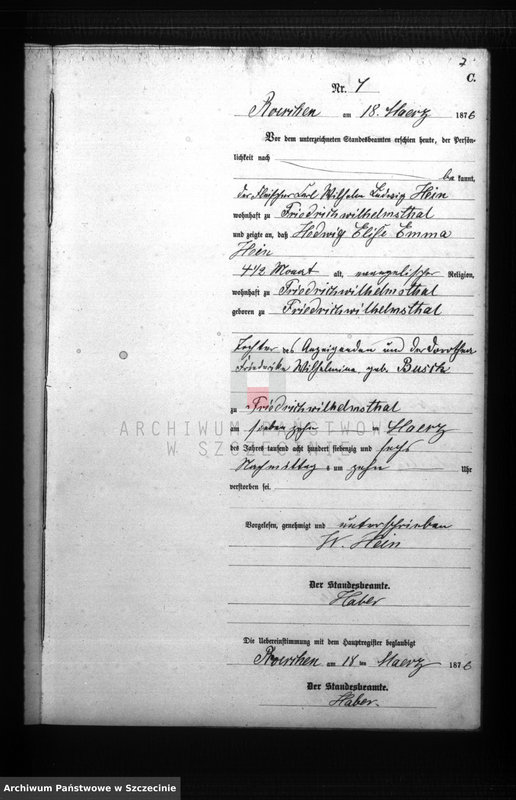 7
C.
Nr. 7
Roerchen am 18. Maerz 1876
Vor dem unterzeichneten Standesbeamten erschien heute, der Persön-
lichkeit nach
be kannt,
der Fleischer Carl Wilhelm Ludwig Hein
wohnhaft zu Friedrichwilhelmsthal
und zeigte an, daß Hedwig Elise Emma
Hein
4 1/2 Monat alt, evangelischer Religion,
wohnhaft zu Friedrichwilhelmsthal
geboren zu Friedrichwilhelmsthal
Tochter des Anzeigenden und der Dorothea
Friederike Wilhelmine geb. Bussch
zu Friedrichwilhelmsthal
am sieben zehn ten Maerz
des Jahres tausend acht hundert siebenzig und sechs
Nachmittag s um zehn Uhr
verstorben sei.
Vorgelesen, genehmigt und unterschrieben
W. Hein
Der Standesbeamte.
Haber
Die Uebereinstimmung mit dem Hauptregister beglaubigt
Roerchen am 18 ten Maerz 1876
Der Standesbeamte.
Haber.
ARCHIWUM PAŃSTWOWE
W SZCZECINIE
Archiwum Państwowe w Szczecinie